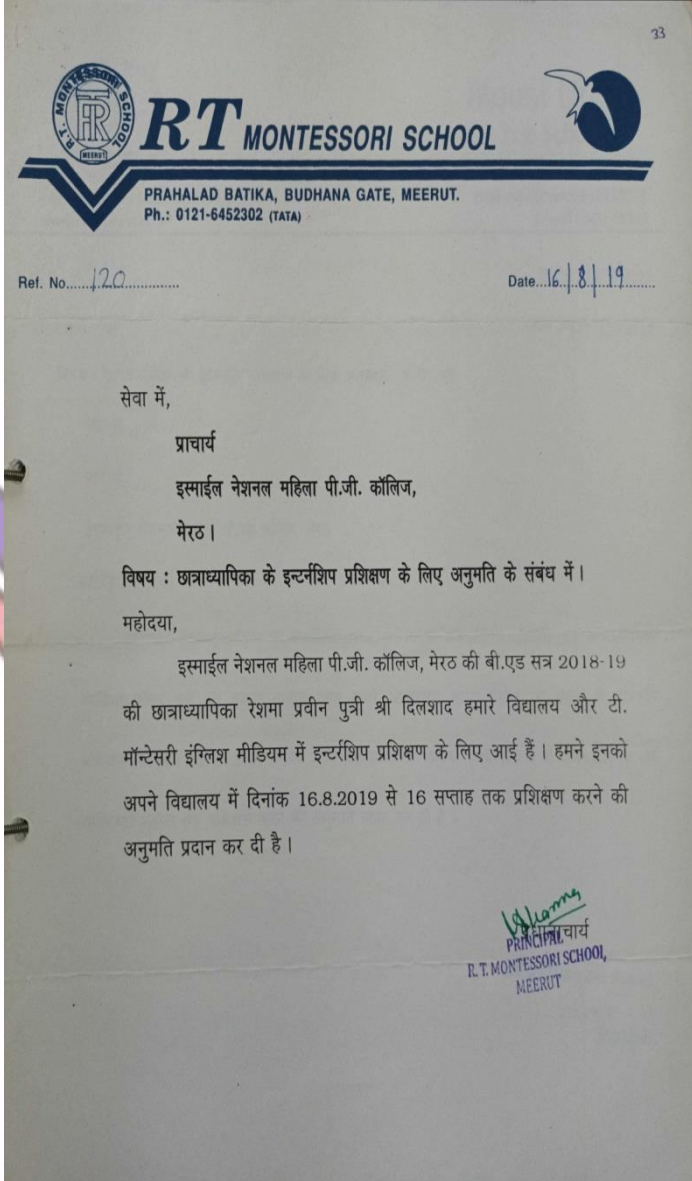 33
R.T. MONTESSORI SCHOOL
MEERUT
RT MONTESSORI SCHOOL
PRAHALAD BATIKA, BUDHANA GATE, MEERUT.
Ph.: 0121-6452302 (TATA)
Ref. No......120.............. Date...16/8/19........
सेवा में,
प्राचार्य
इस्माईल नेशनल महिला पी.जी. कॉलिज,
मेरठ।
विषय : छात्राध्यापिका के इन्टर्नशिप प्रशिक्षण के लिए अनुमति के संबंध में।
महोदया,
इस्माईल नेशनल महिला पी.जी. कॉलिज, मेरठ की बी.एड सत्र 2018-19
की छात्राध्यापिका रेशमा प्रवीन पुत्री श्री दिलशाद हमारे विद्यालय और टी.
मॉन्टेसरी इंग्लिश मीडियम में इन्टर्रशिप प्रशिक्षण के लिए आई हैं। हमने इनको
अपने विद्यालय में दिनांक 16.8.2019 से 16 सप्ताह तक प्रशिक्षण करने की
अनुमति प्रदान कर दी है।
प्रधानाचार्य
PRINCIPAL
R. T. MONTESSORI SCHOOL,
MEERUT